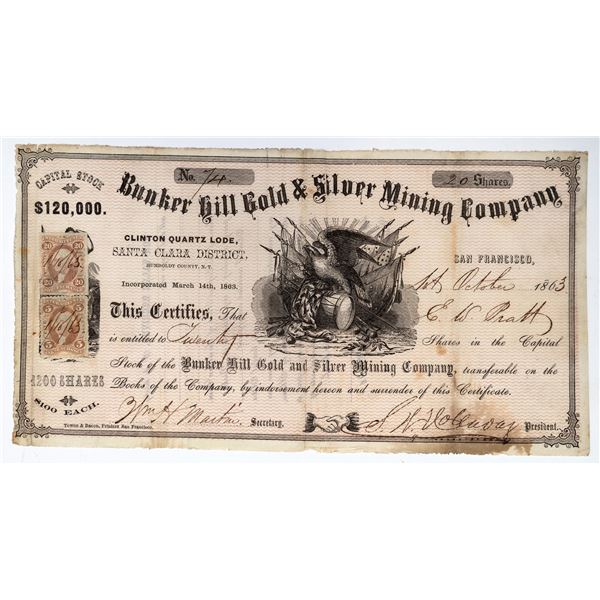 CAPITAL STOCK
$120,000.
No. 74.
20 Shares.
Bunker Hill Gold & Silver Mining Company
CLINTON QUARTZ LODE,
SANTA CLARA DISTRICT,
HUMBOLDT COUNTY, N. T.
Incorporated March 14th, 1863.
SAN FRANCISCO,
1st October 1863
This Certifies, That E. W. Pratt
is entitled to Twenty Shares in the Capital
Stock of the Bunker Hill Gold and Silver Mining Company, transferable on the
Books of the Company, by indorsement hereon and surrender of this Certificate.
20 20
20 20
5 5
5 5
1200 SHARES
$100 EACH.
Wm H Martin. Secretary.
President.
TOWNE & BACON, Printers San Francisco.